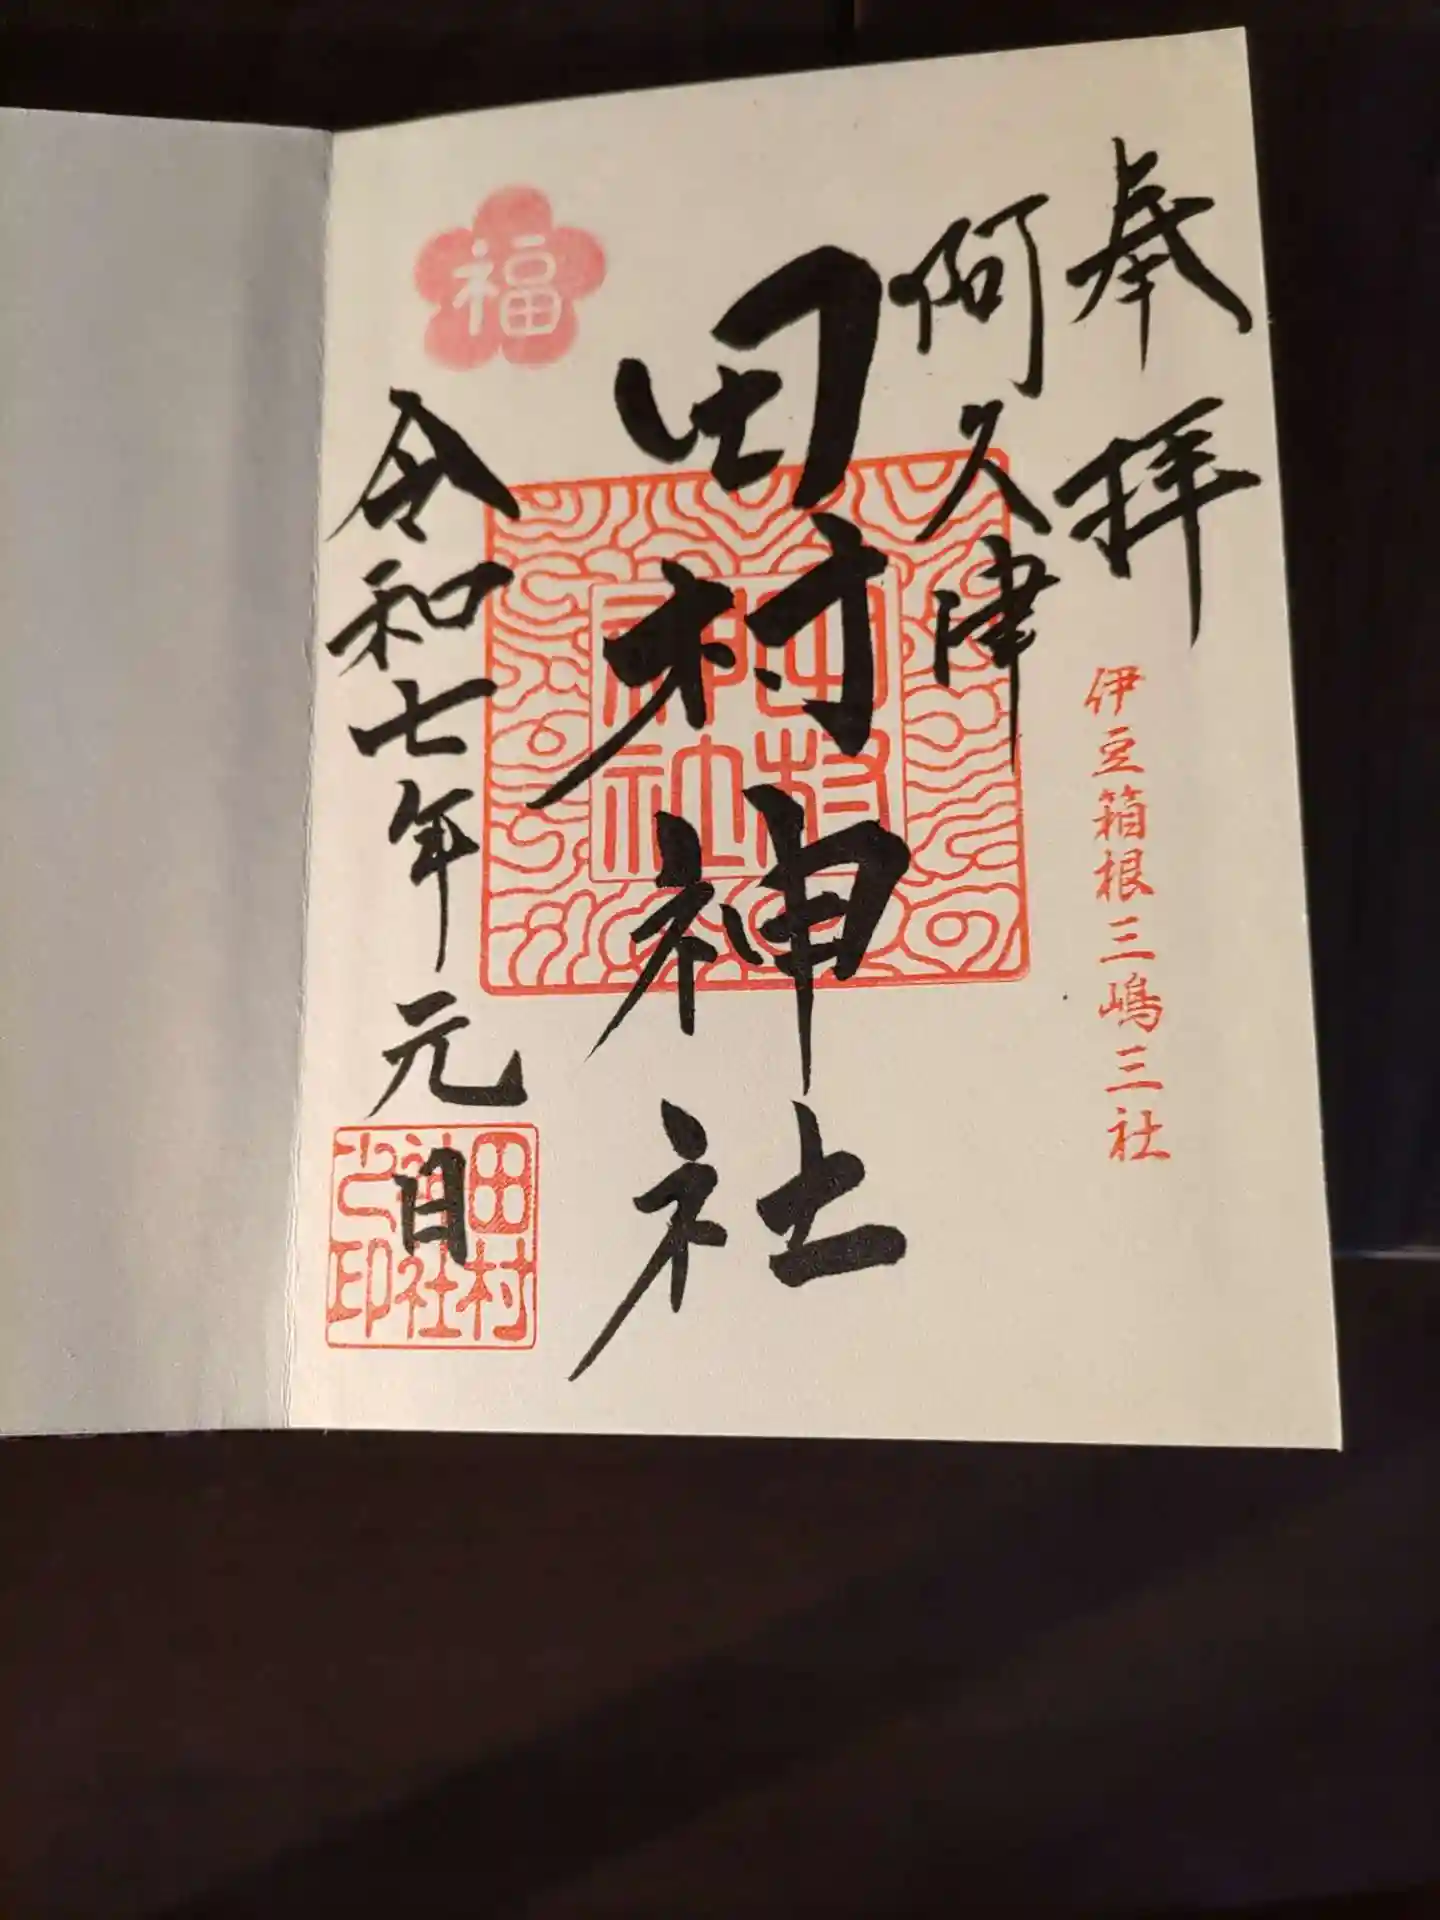 奉拝
伊豆箱根三嶋三社
阿久津
田村神社
田村神社
福
令和七年元日
田村神社之印